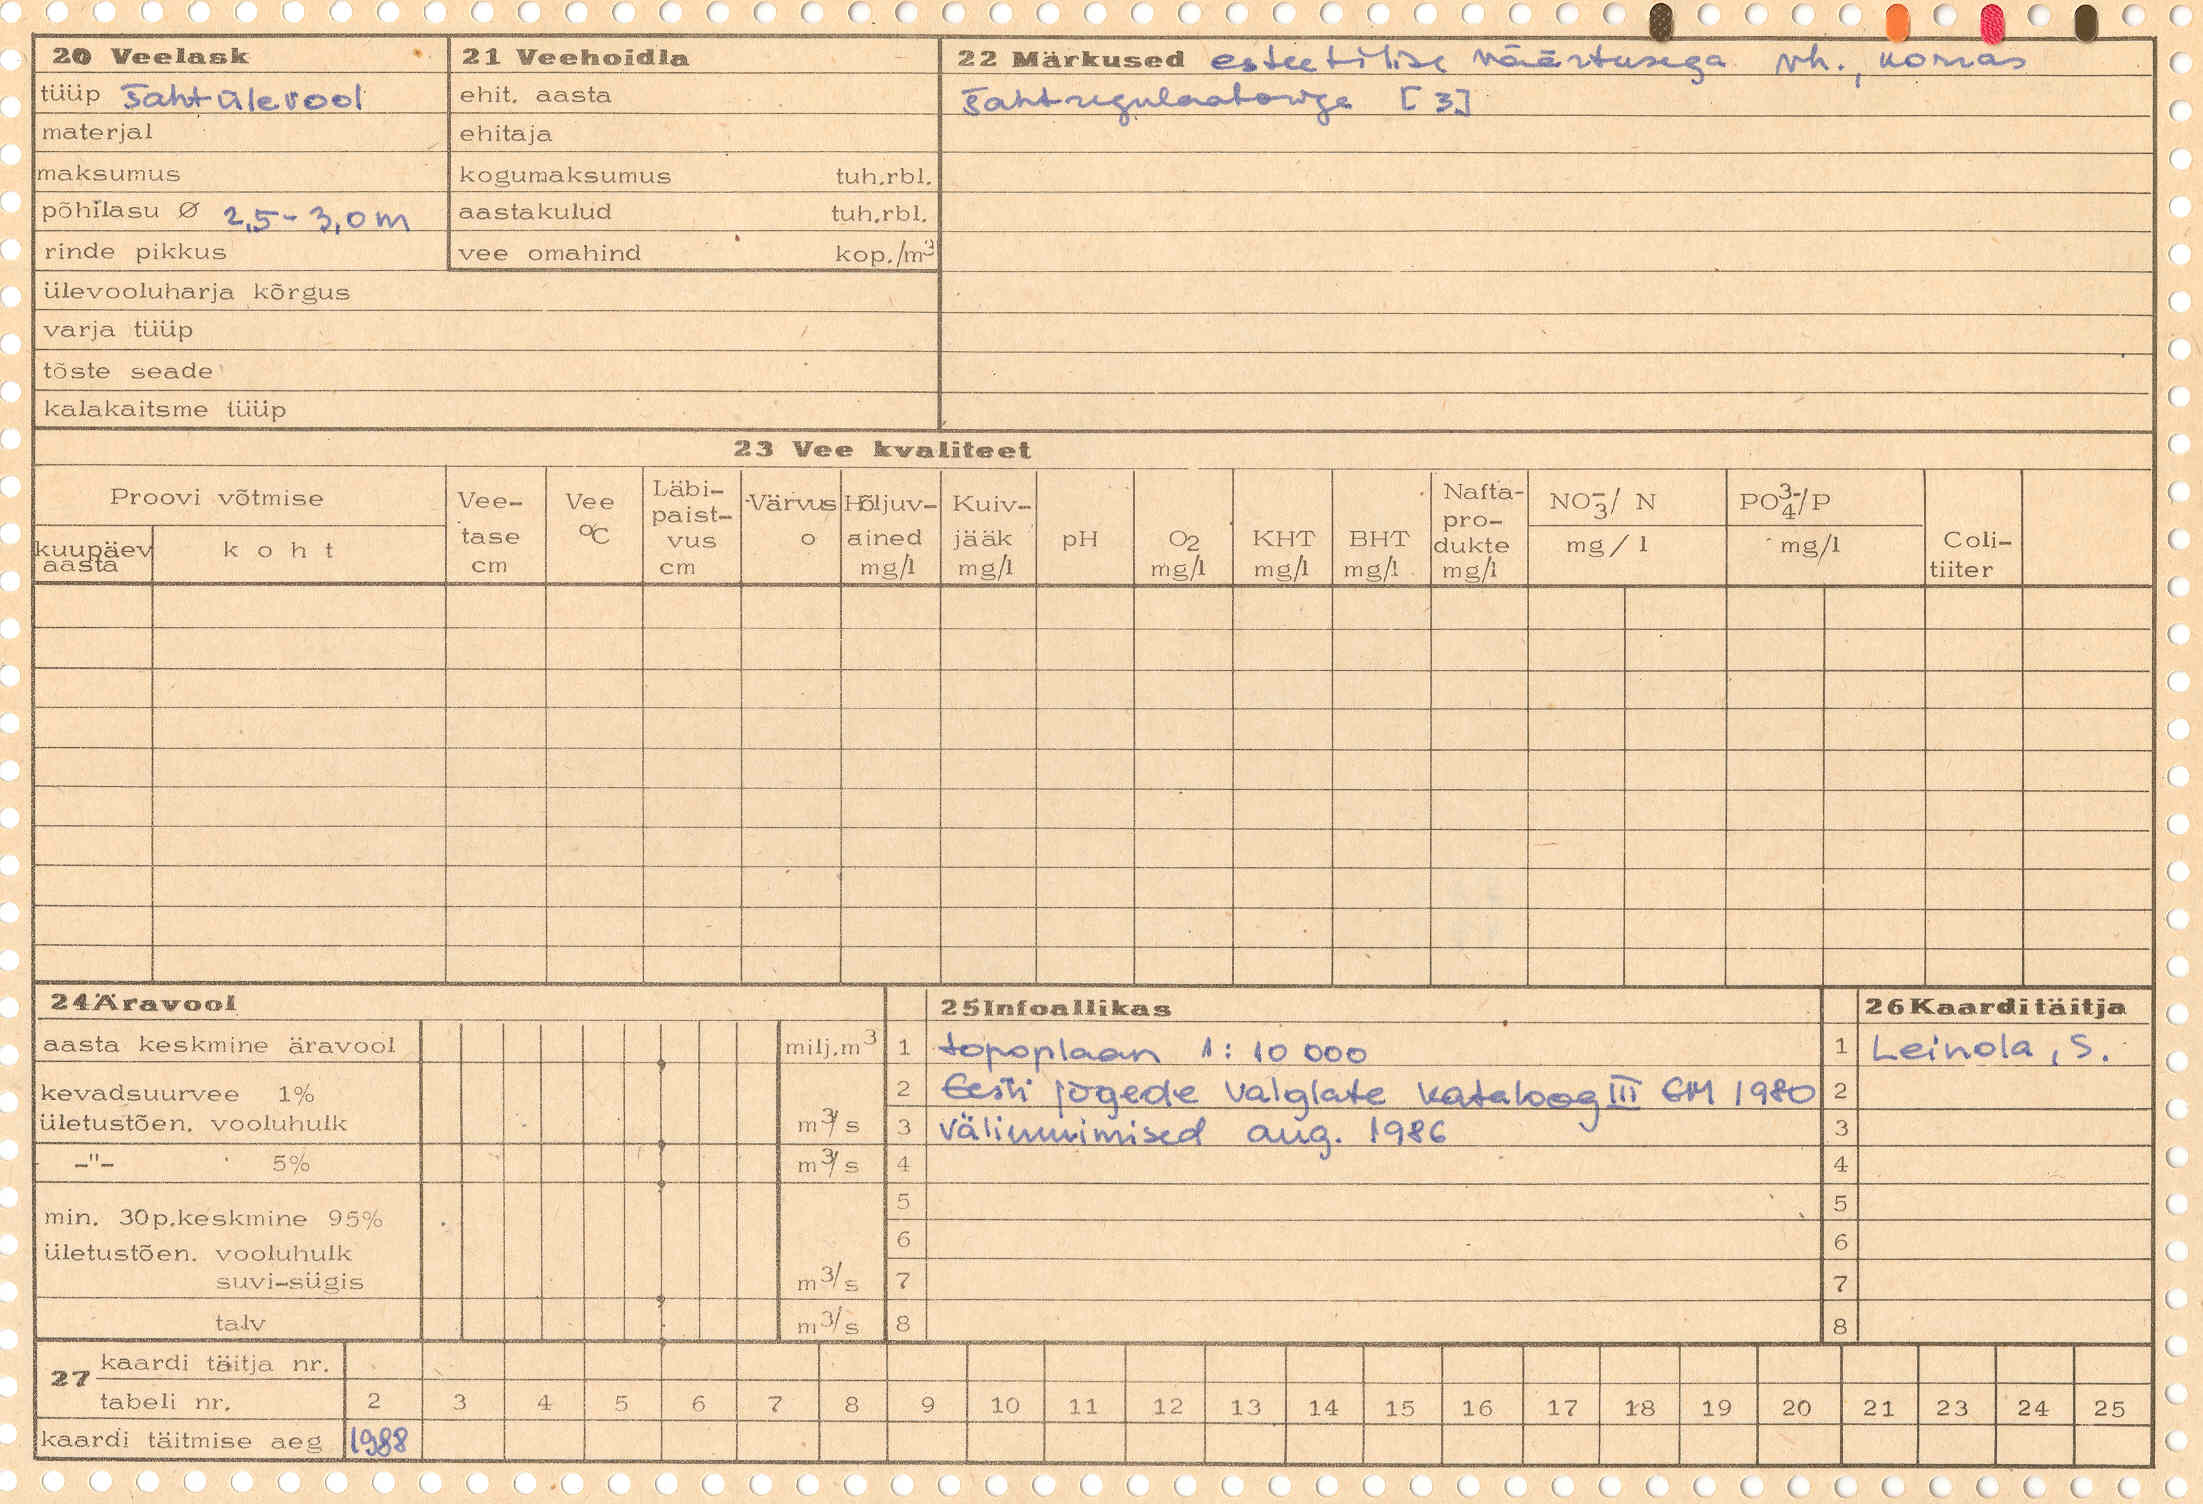 20 Veelask
tüüp šahtülevool
materjal
maksumus
põhilasu Ø 2,5-3,0 m
rinde pikkus
ülevooluharja kõrgus
varja tüüp
tõste seade
kalakaitsme tüüp
21 Veehoidla
ehit. aasta
ehitaja
kogumaksumus tuh.rbl.
aastakulud tuh.rbl.
vee omahind kop./m³
22 Märkused esteetilise väärtusega vh., korras
šahtregulaatoriga [3]
23 Vee kvaliteet
Proovi võtmise
kuupäev
aasta
koht
Vee-
tase
cm
Vee
°C
Läbi-
paist-
vus
cm
Värvus
o
Hõljuv-
ained
mg/l
Kuiv-
jääk
mg/l
pH
O₂
mg/l
KHT
mg/l
BHT
mg/l
Nafta-
pro-
dukte
mg/l
NO₃⁻/ N
mg/l
PO₄³⁻/P
mg/l
Coli-
tiiter
24 Äravool
aasta keskmine äravool milj.m³
kevadsuurvee 1%
ületustõen. vooluhulk m³/s
-"- 5% m³/s
min. 30p.keskmine 95%
ületustõen. vooluhulk
suvi-sügis m³/s
talv m³/s
25 Infoallikas
1 topoplaan 1:10 000
2 Eesti jõgede valglate kataloog III EM 1980
3 väliuurimised aug. 1986
4
5
6
7
8
26 Kaardi täitja
1 Leinola, S.
2
3
4
5
6
7
8
27 kaardi täitja nr.
tabeli nr. 2 3 4 5 6 7 8 9 10 11 12 13 14 15 16 17 18 19 20 21 23 24 25
kaardi täitmise aeg 1988